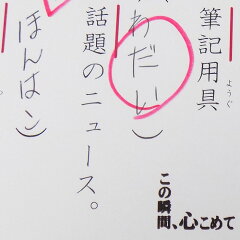 筆記用具
ようぐ
わだい)
話題のニュース。
ほんはこ)
この瞬
間、心こめて